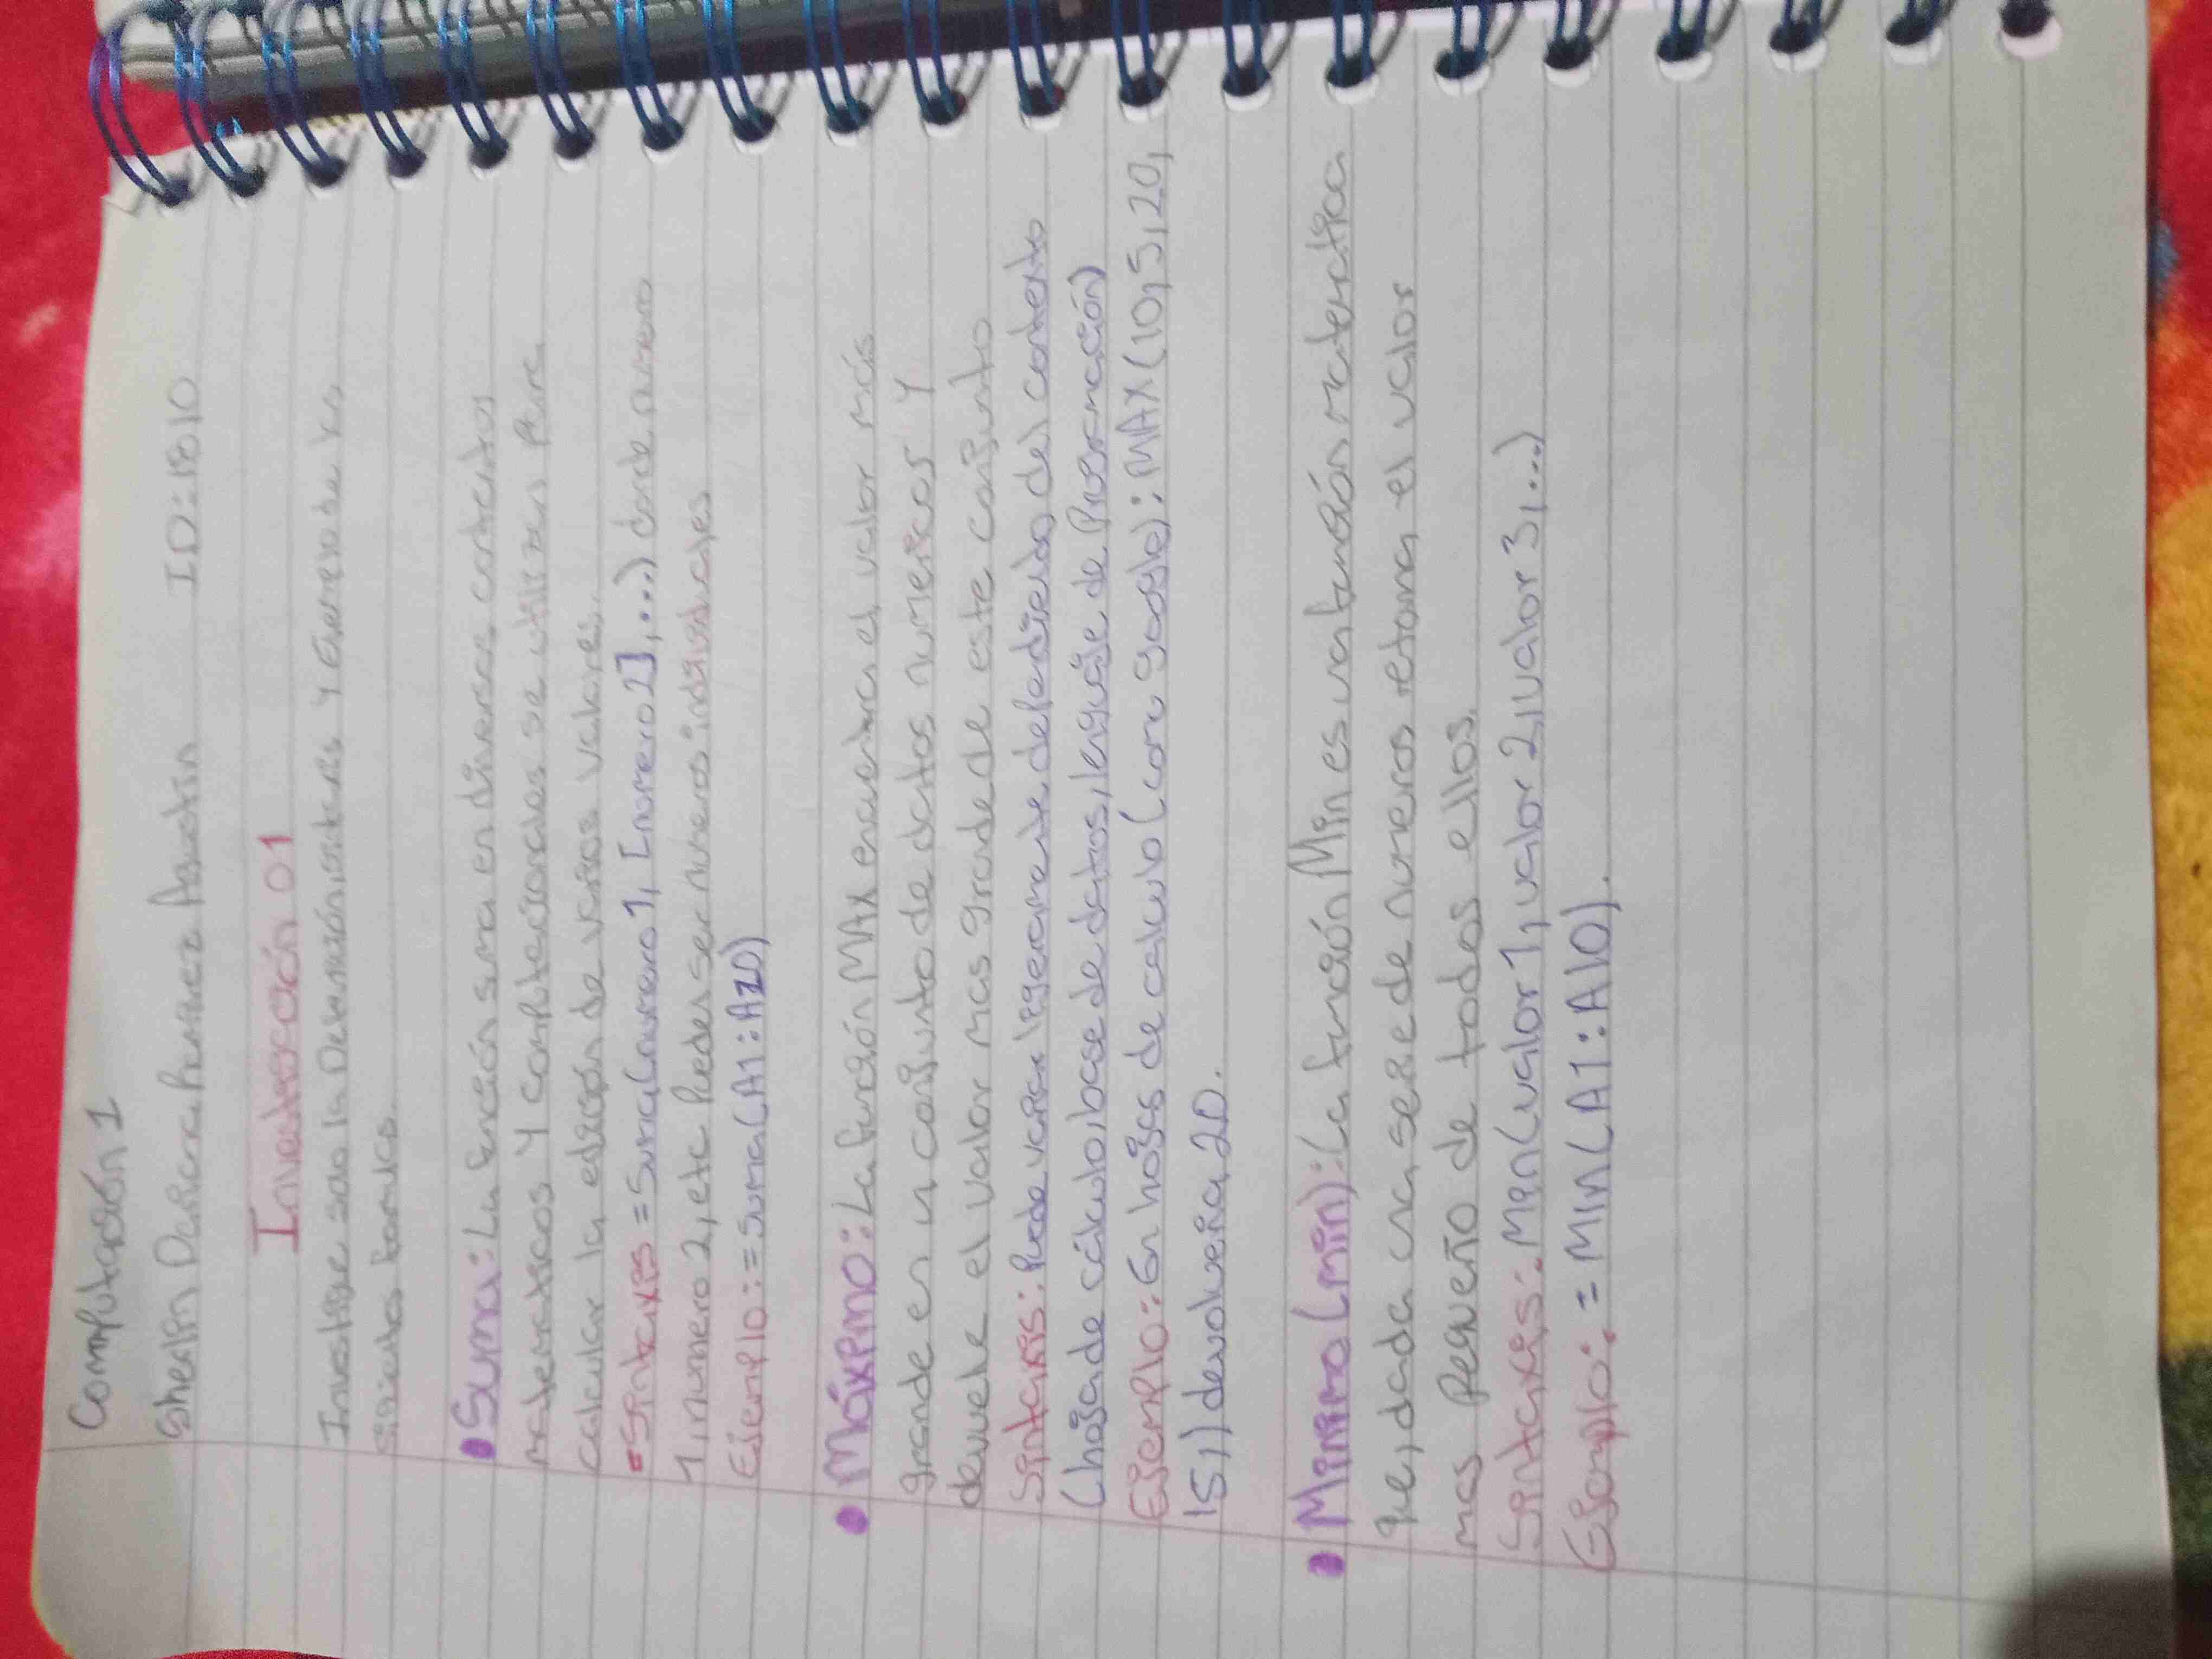 Computación 1
ID: 1810
Investigación 01
Investige sao la Definición, sintaxis y Ejemplo de las
siguientes formulas.
• Suma: La función suma en diversos contextos
matematicos y computacionales se utilizan para
calcular la adición de varios valores.
=Sintaxis = Suma(numero1, [numero2],...) donde numero
1, numero 2, etc Pueden ser numeros individuales
Ejemplo: =Suma(A1:A20)
• Máximo: La función MAX encuentra el valor más
grande en un conjunto de datos numericos y
devuelve el valor mas grande de este conjunto
Sintaxis: Puede variar ligeramente dependiendo del contexto
(hoja de cálculo, base de datos, lenguaje de Programación)
Ejemplo: En hojas de calculo (como google): MAX(10,5,20,
15,) devolveria 20.
• Minimo (min): La función Min es una función matemática
que, dada una serie de numeros retorna el valor
mas pequeño de todos ellos.
Sintaxis: Min(valor1, valor2, valor3,...)
Ejemplo: =Min(A1:A10).